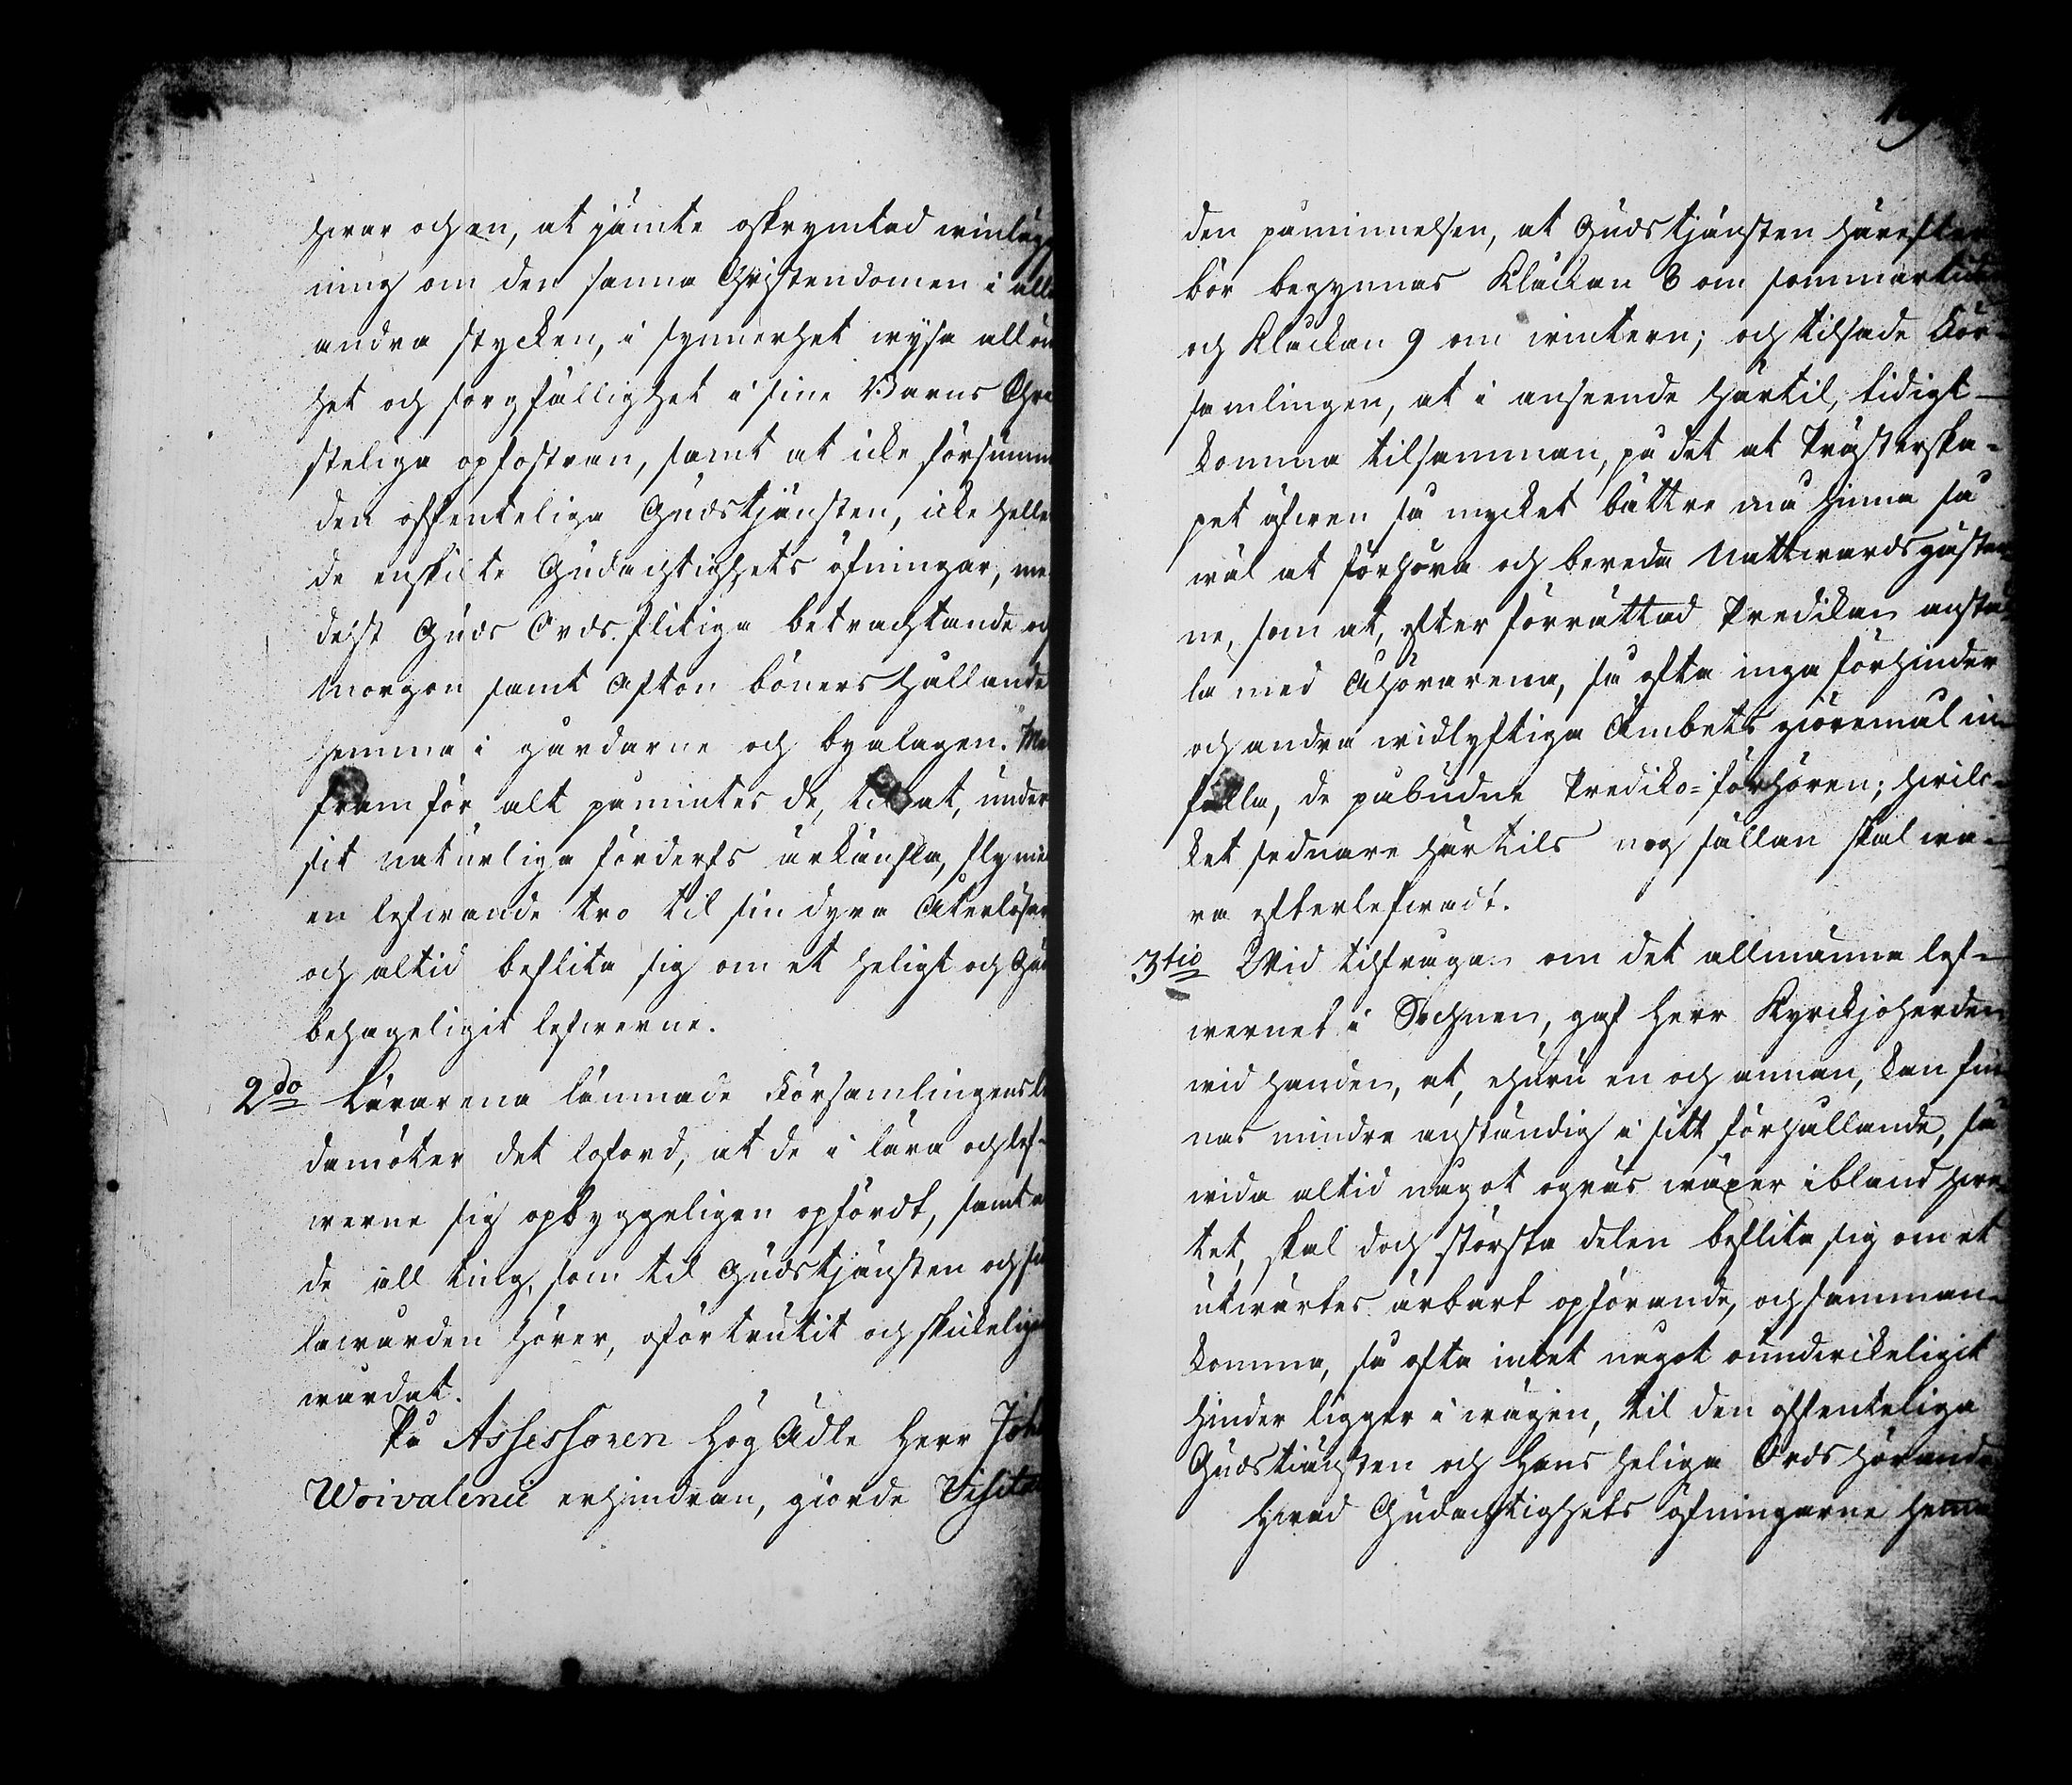 hwar och en, at jämte oskrymtad winlägg
ning om den sanna Christendomen i alla
andra stycken, i synnerhet wysa all öm
het och sorgfällighet i sine Barns Chri
steliga opfostran, samt at icke försumma
den offenteliga Gudstjänsten, icke heller
de enskilte Gudachtighets öfningar, me
delst Guds Ords flitiga betrachtande och
Morgon samt Afton böners hållande
hemma i gårdarne och byalagen. Men
fram för alt påmintes de, til at, under
sit naturliga förderfs ärkänsla, fly med
en lefwande tro til sin dyra Återlösare
och altid beflita sig om et heligt och Gud
behageligit lefwerne.
2do Lärarena lämnade Församlingens le
damöter det loford, at de i lära och lef-
werne sig opbyggeligen opfördt, samt a
de all ting, som til Gudstjänsten och sjä
lawården hörer, oförtrutit och skickeligen
wårdat.
På Assessoren Hög Ädle Herr Joh
Woivalenii erhindran, giorde Visitat
den påminnelsen, at Gudstjänsten härefter
bör begynnas Kläckan 8 om sommartiden
och Kläckan 9 om wintern; och tilsade För-
samlingen, at i anseende härtil, tidigt
komma tilsamman, på det at Prästerska-
pet äfwen så mycket bättre må hinna så
wäl at förhöra och bereda Nattwardsgäster-
ne, som at, efter förrättad Predikan anstäl-
la med Åhörarena, så ofta inga förhinder
och andra widlyftiga Ämbets giöremål in-
falla, de påbudne Prediko-förhören; hwilc-
ket sednare härtils nog sällan skal wa-
ra efterlefwadt.
3tio Wid tilfrågan om det allmänna lef-
wernet i Sochnen, gaf Herr Kyrckjoherden
wid handen, at, ehuru en och annan, kan fin
nas mindre anständig i sitt förhållande, så
wida altid något ogräs wäxer ibland hwe-
tet, skal doch största delen beflita sig om et
utwärtes ärbart opförande, och samman-
komma, så ofta intet något oundwickeligit
hinder ligger i wägen, til den offenteliga
Gudstiänsten och Hans heliga Ords hörande
Hwad Gudachtighets öfningarne hemma